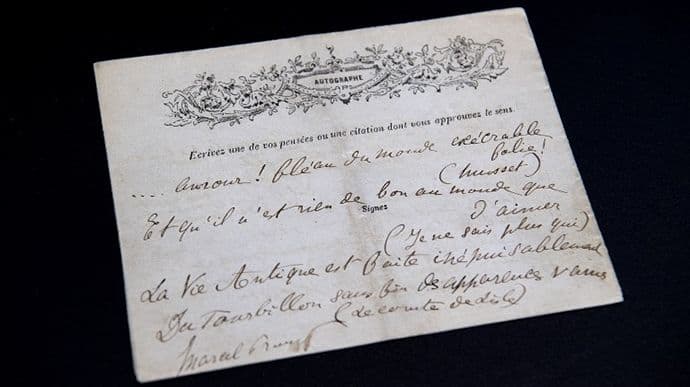 AUTOGRAPHE
Ecrivez une de vos pensées ou une citation dont vous approuvez le sens.
.... amour ! fléau du monde exécrable
folie !
(Musset)
Et qu'il n'est rien de bon au monde que
d'aimer
Signez
(Je ne sais plus qui)
La Vie Antique est faite inépuisablement
Du Tourbillon sans fin des apparences vaines
(Leconte de Lisle)
Marcel Proust